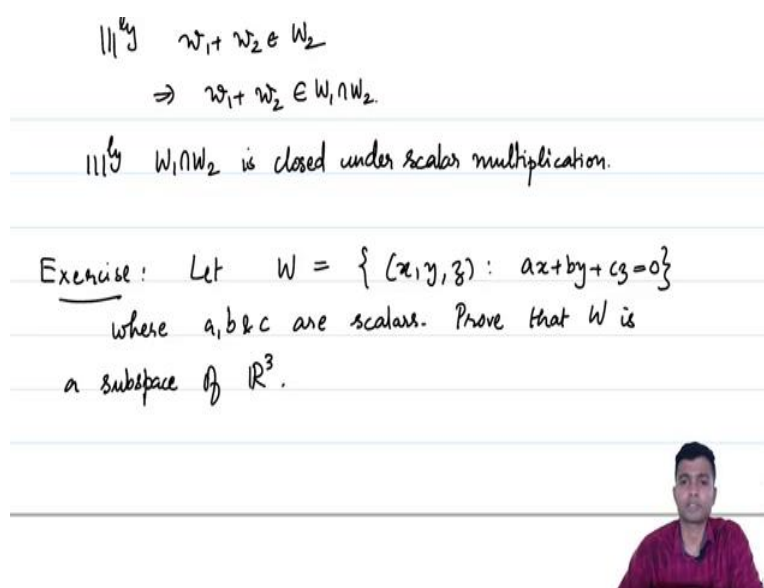 |||ly w₁+ w₂ ∈ W₂
⇒ w₁+ w₂ ∈ W₁∩W₂.
|||ly W₁∩W₂ is closed under scalar multiplication.
Exercise: Let W = { (x,y,z) : ax+by+cz=0}
where a,b & c are scalars. Prove that W is
a subspace of ℝ³.